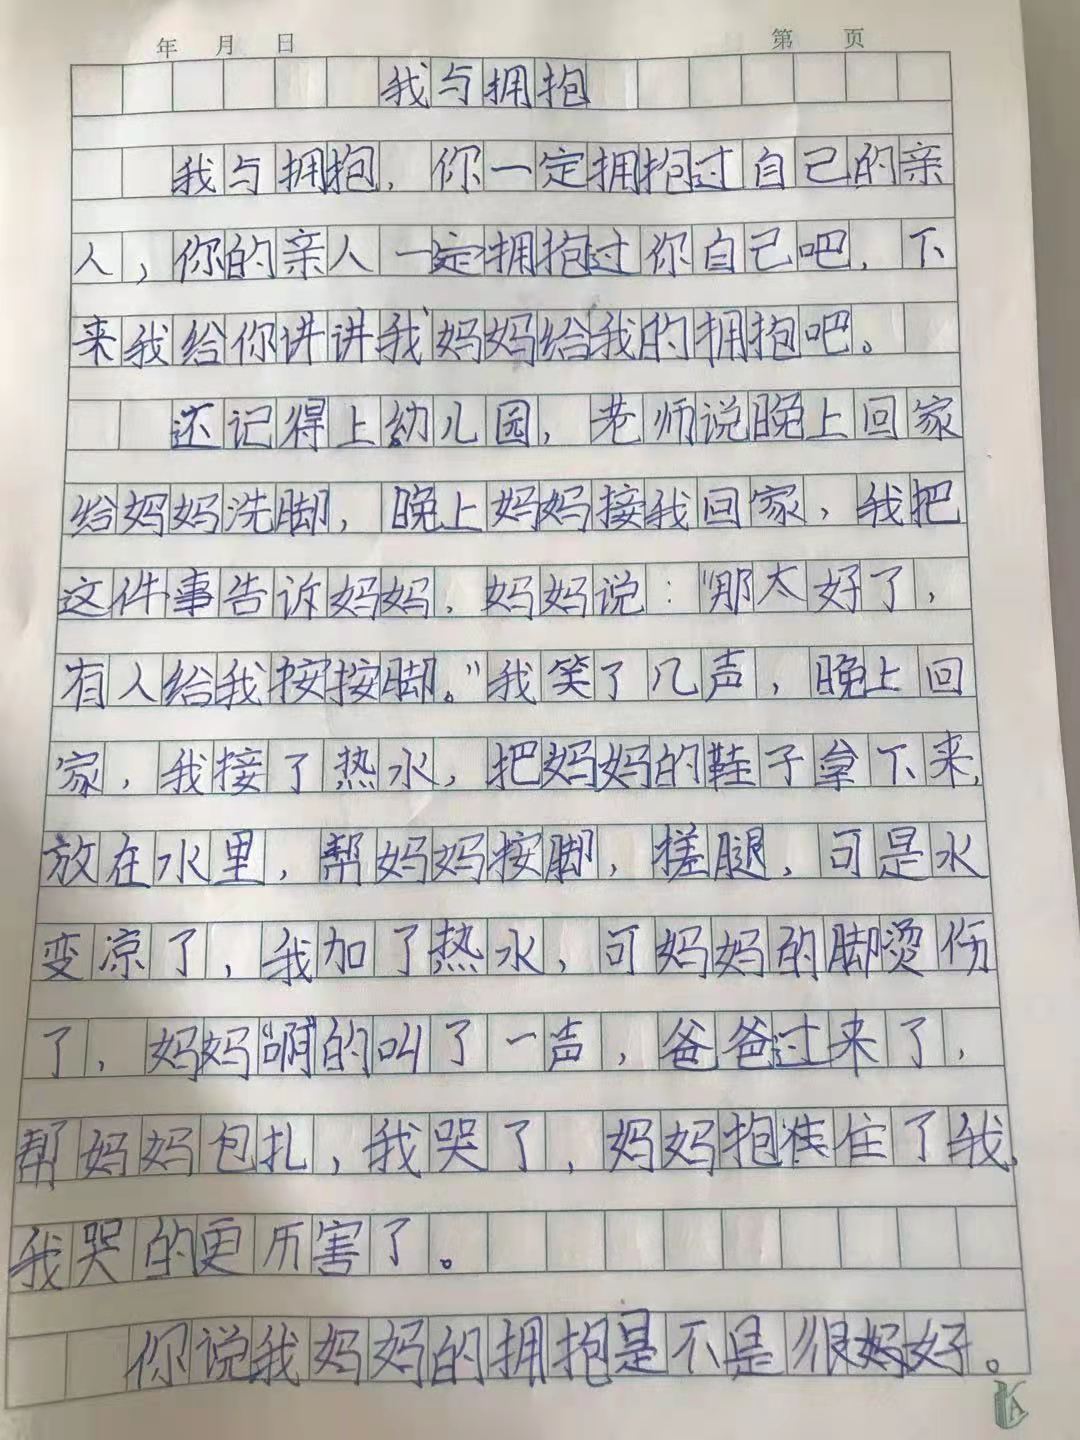 年 月 日 第 页
我与拥抱
我与拥抱，你一定拥抱过自己的亲
人，你的亲人一定拥抱过你自己吧，下
来我给你讲讲我妈妈给我的拥抱吧。
还记得上幼儿园，老师说晚上回家
给妈妈洗脚，晚上妈妈接我回家，我把
这件事告诉妈妈，妈妈说：“那太好了，
有人给我按按脚。”我笑了几声，晚上回
家，我接了热水，把妈妈的鞋子拿下来，
放在水里，帮妈妈按脚，搓腿，可是水
变凉了，我加了热水，可妈妈的脚烫伤
了，妈妈“啊”的叫了一声，爸爸过来了，
帮妈妈包扎，我哭了，妈妈抱住了我，
我哭的更厉害了。
你说我妈妈的拥抱是不是很好。